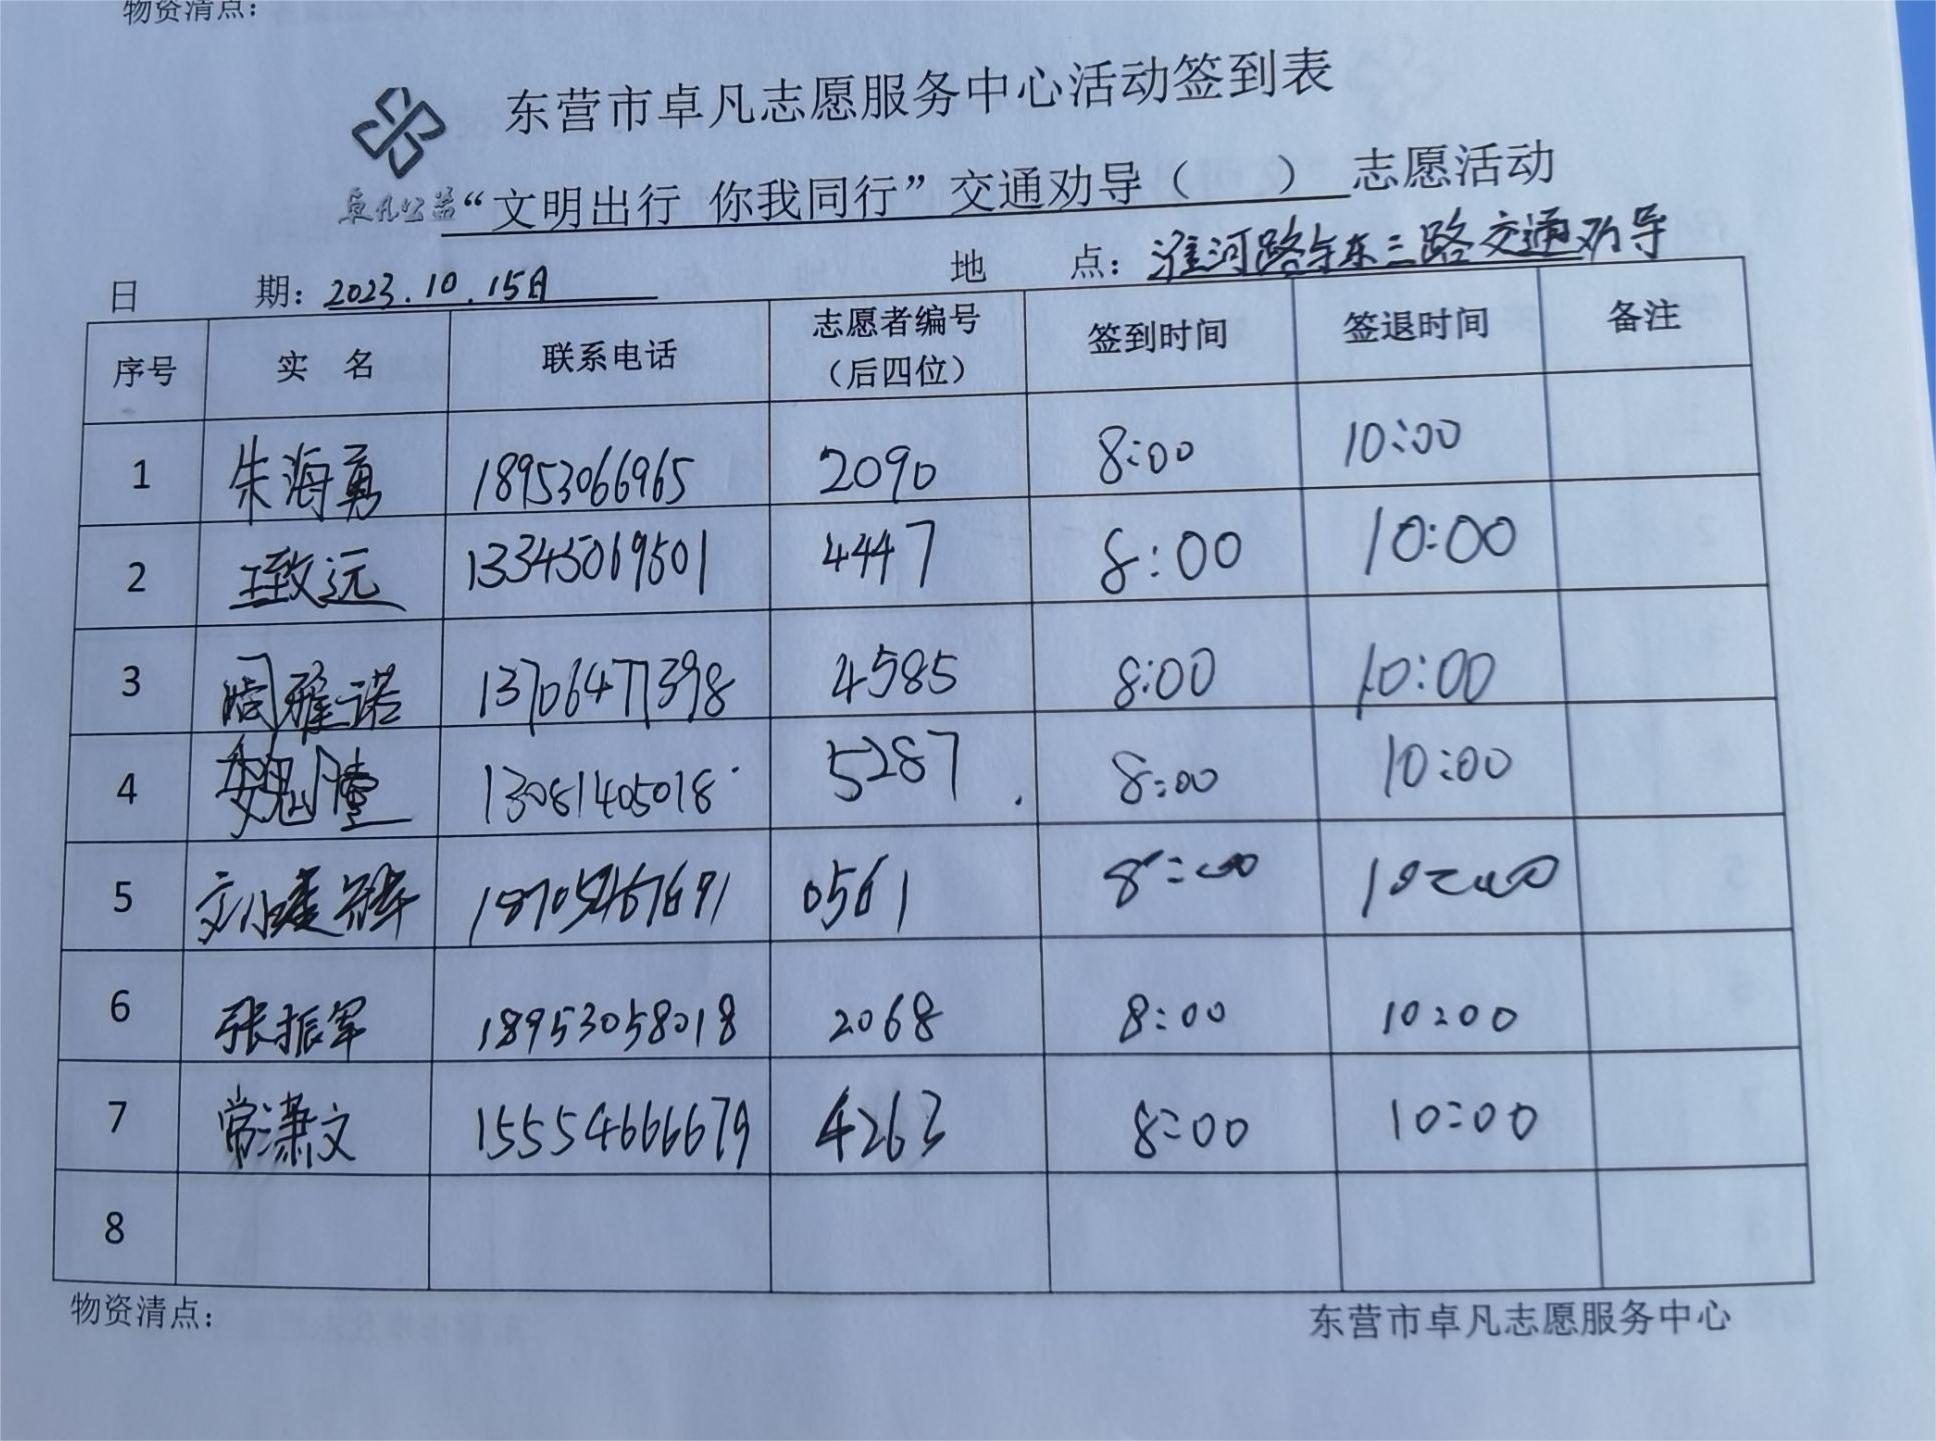 物资清点：
东营市卓凡志愿服务中心活动签到表
卓凡公益
“文明出行 你我同行”交通劝导（ ） 志愿活动
日 期：2023.10.15日 地 点：淮河路与东三路交通劝导
序号 实 名 联系电话 志愿者编号（后四位） 签到时间 签退时间 备注
1 朱海勇 18953066965 2090 8:00 10:00
2 王致远 13345069501 4447 8:00 10:00
3 周雅诺 13706477398 4585 8:00 10:00
4 魏 13081405018 5287 8:00 10:00
5 18705467691 0561 8:00 10:00
6 张振军 18953058018 2068 8:00 10:00
7 常潇文 15554666679 4263 8:00 10:00
8
物资清点： 东营市卓凡志愿服务中心